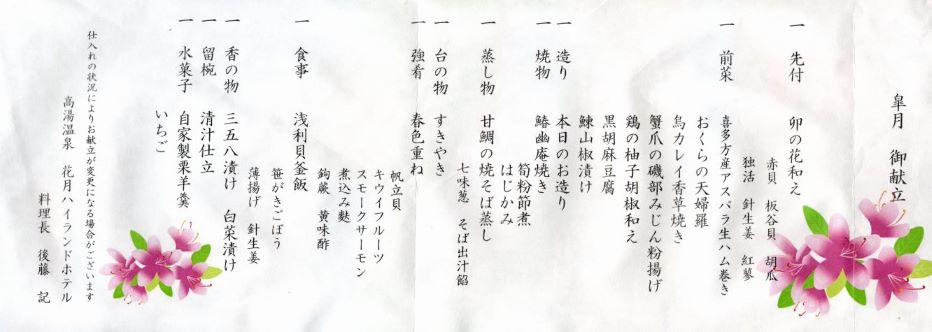 皐月　御献立
一　先付　卯の花和え
赤貝　板谷貝　胡瓜
独活　針生姜　紅蓼
一　前菜　喜多方産アスパラ生ハム巻き
おくらの天婦羅
烏カレイ香草焼き
蟹爪の磯部みじん粉揚げ
鶏の柚子胡椒和え
黒胡麻豆腐
鰊山椒漬け
一　造り　本日のお造り
一　焼物　鰆幽庵焼き
筍粉節煮
はじかみ
一　蒸し物　甘鯛の焼そば蒸し
七味葱　そば出汁餡
一　台の物　すきやき
一　強肴　春色重ね
帆立貝
キウイフルーツ
スモークサーモン
煮込み麩
鉤蕨　黄味酢
一　食事　浅利貝釜飯
笹がきごぼう
薄揚げ　針生姜
一　香の物　三五八漬け　白菜漬け
一　留椀　清汁仕立
一　水菓子　自家製栗羊羹
いちご
仕入れの状況によりお献立が変更になる場合がございます
高湯温泉　花月ハイランドホテル
料理長　後藤　記